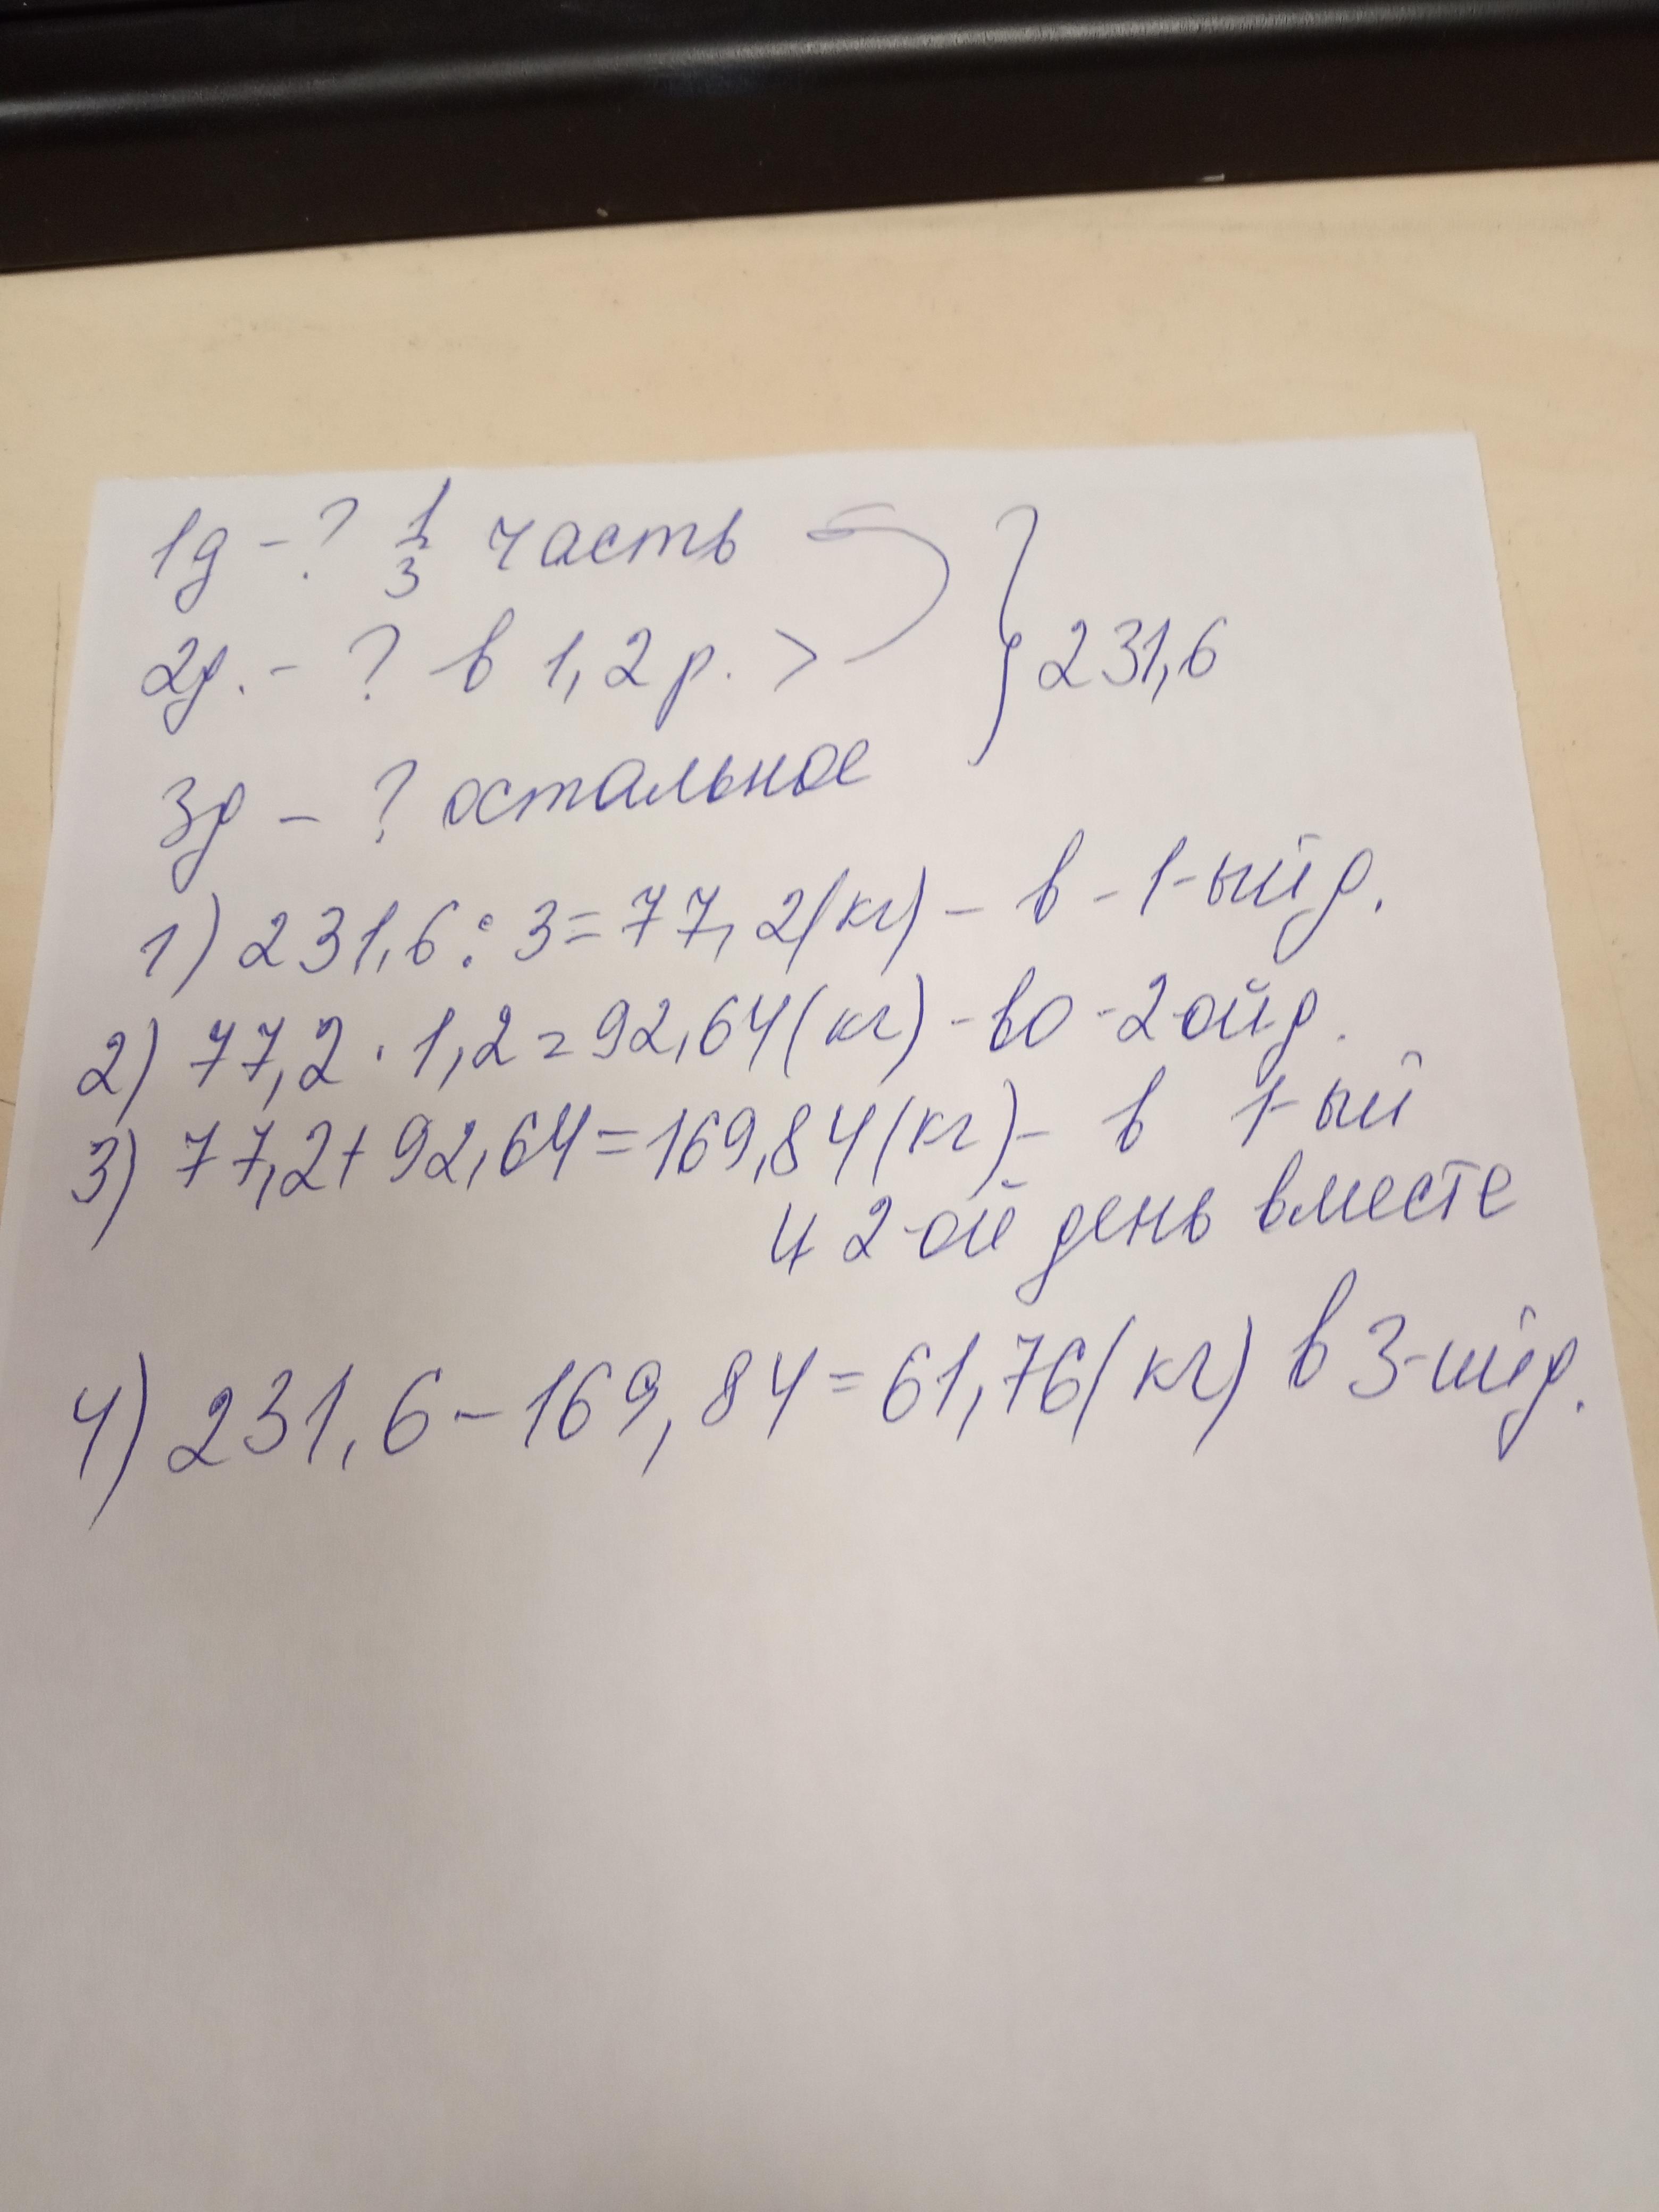 1д - ? 1/3 часть
2д. - ? в 1,2 р. > } 231,6
3д - ? остальное
1) 231,6 : 3 = 77,2 (кг) - в - 1-ый д.
2) 77,2 · 1,2 = 92,64 (кг) - во - 2-ой д.
3) 77,2 + 92,64 = 169,84 (кг) - в 1-ый
и 2-ой день вместе
4) 231,6 - 169,84 = 61,76 (кг) в 3-ий д.